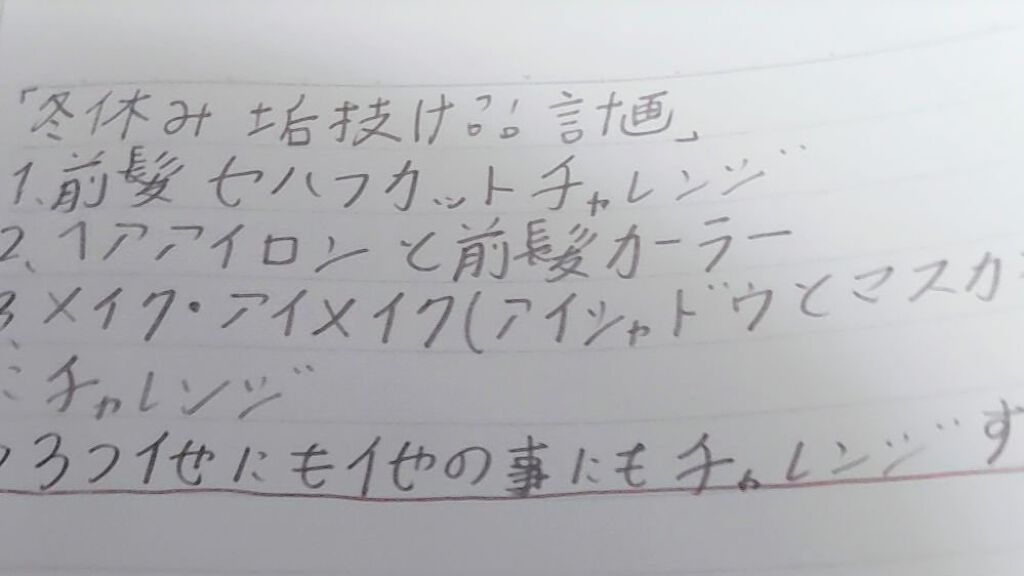 「冬休み 垢技け?? 計画」
1.前髪 セハフカットチャレンジ
2.ヘアアイロンと前髪カーラー
3.メイク・アイメイク(アイシャドウとマスカ
にチャレンジ
3つ他にも他の事にもチャレンジす